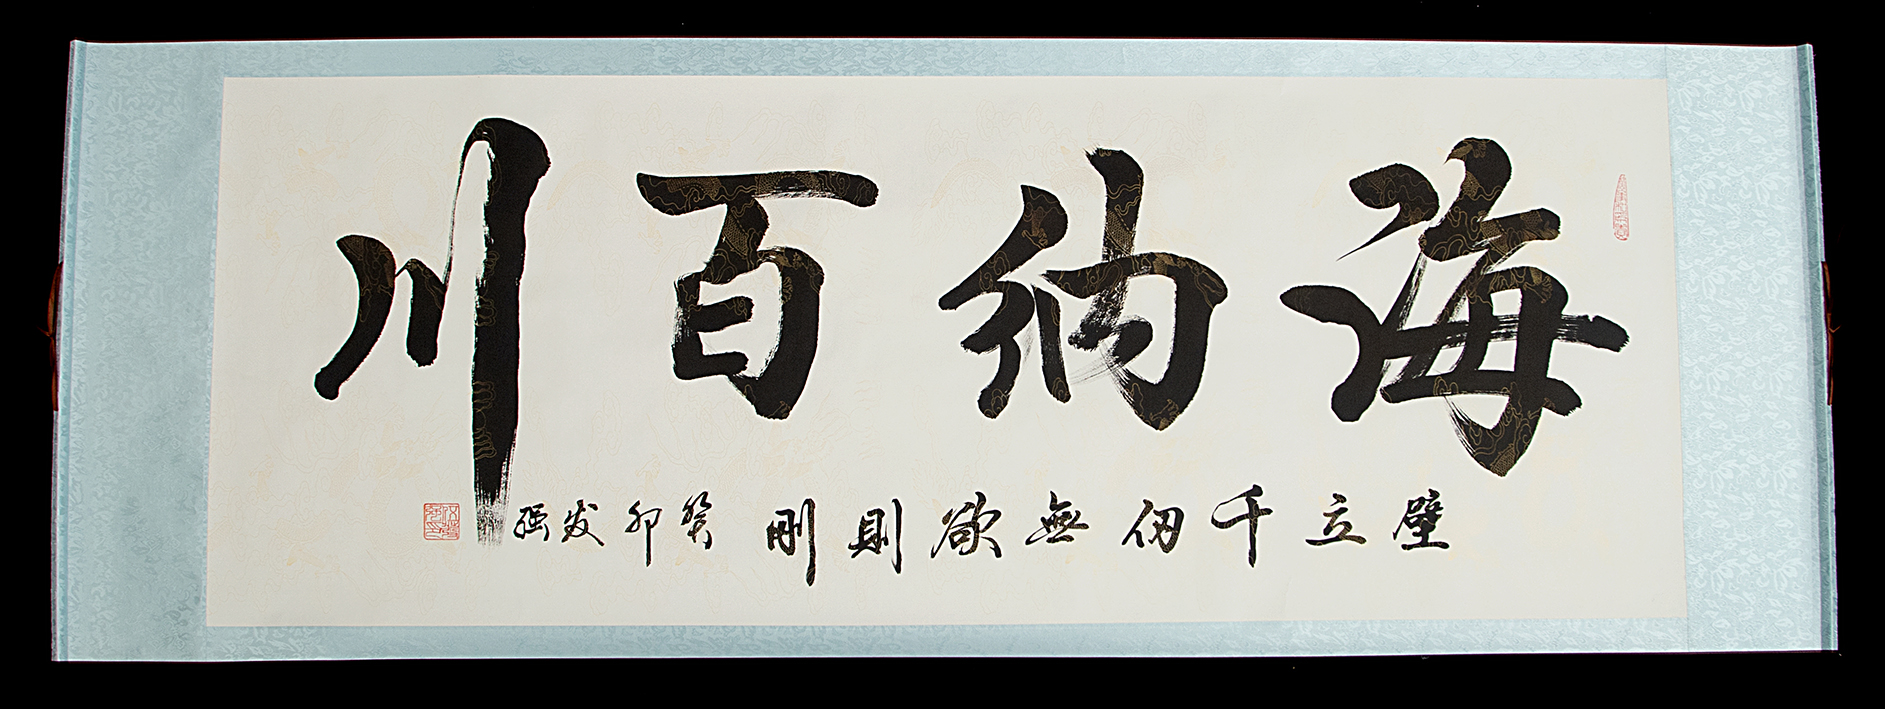 海納百川
壁立千仞無欲則剛癸卯发强